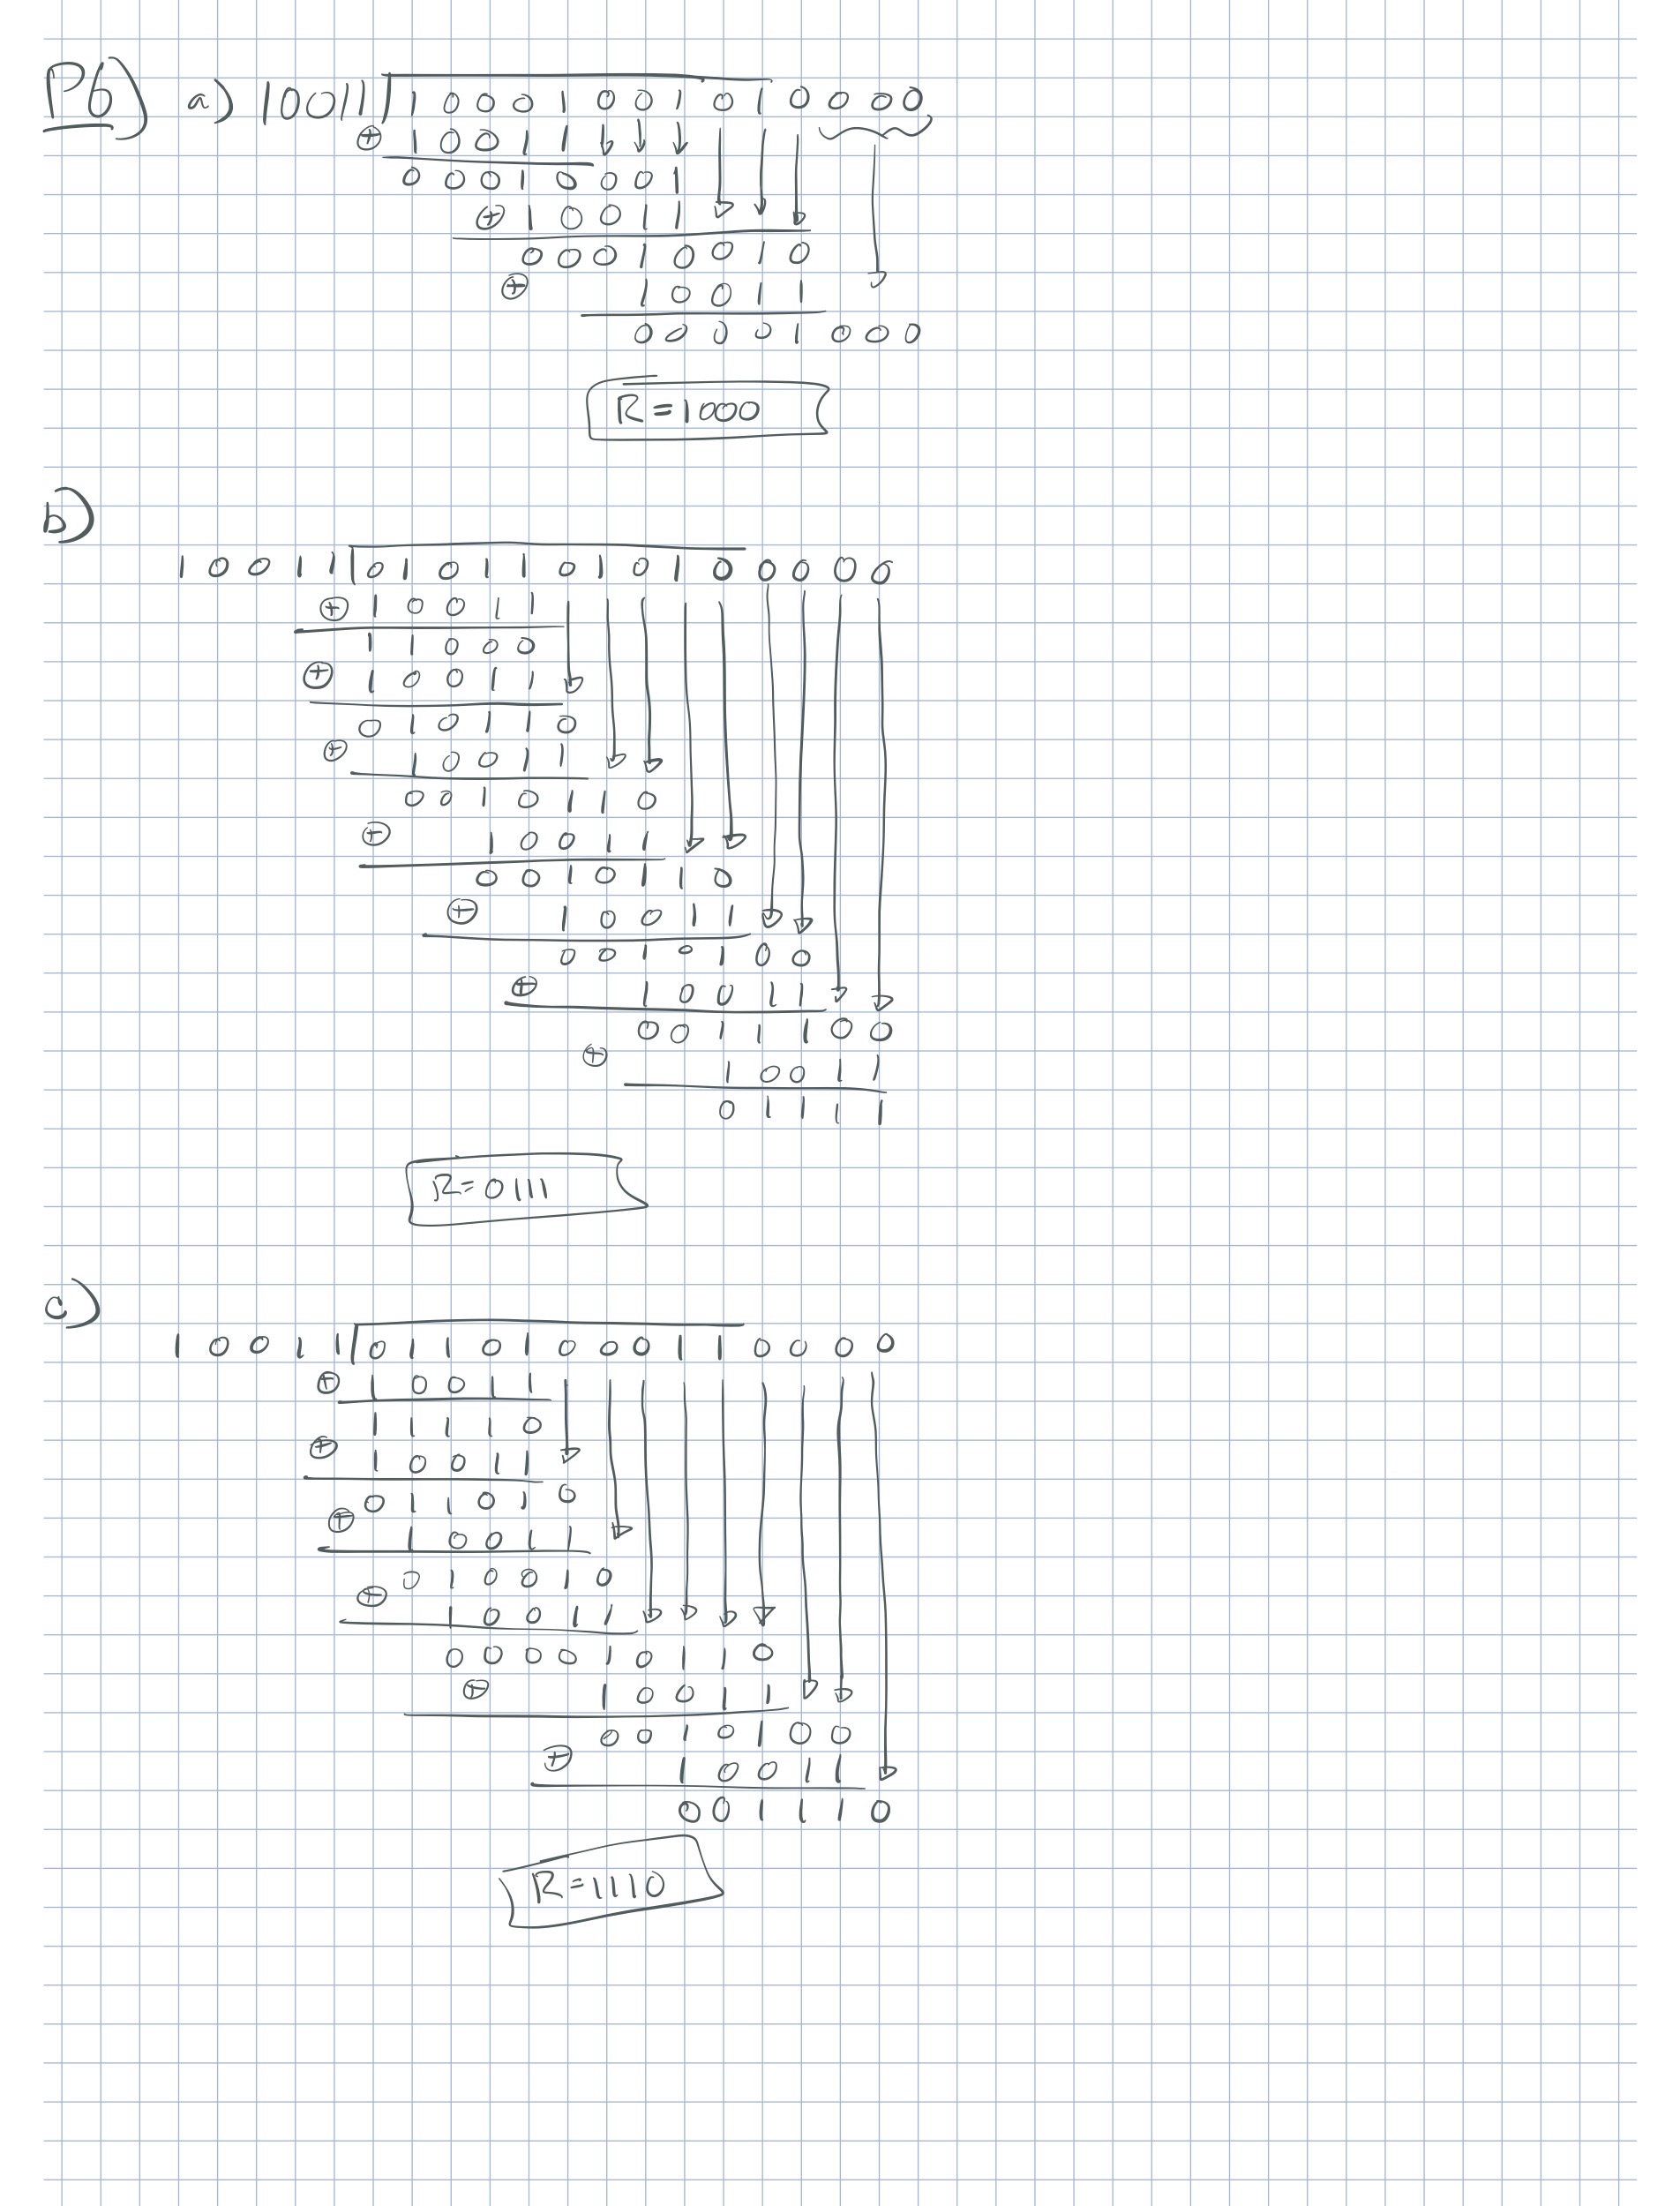 P6) a) 10011 1 0 0 0 1 0 0 1 0 1 0 0 0 0
⊕ 1 0 0 1 1
0 0 0 1 0 0 0 1
⊕ 1 0 0 1 1
0 0 0 1 0 0 1 0
⊕ 1 0 0 1 1
0 0 0 0 1 0 0 0
R = 1000
b)
1 0 0 1 1 0 1 0 1 1 0 1 0 1 0 0 0 0 0
⊕ 1 0 0 1 1
1 1 0 0 0
⊕ 1 0 0 1 1
0 1 0 1 1 0
⊕ 1 0 0 1 1
0 0 1 0 1 1 0
⊕ 1 0 0 1 1
0 0 1 0 1 1 0
⊕ 1 0 0 1 1
0 0 1 0 1 0 0
⊕ 1 0 0 1 1
0 0 1 1 1 0 0
⊕
1 0 0 1 1
0 1 1 1 1
R = 0111
c)
1 0 0 1 1 0 1 1 0 1 0 0 0 1 1 0 0 0 0
⊕ 1 0 0 1 1
1 1 1 1 0
⊕ 1 0 0 1 1
0 1 1 0 1 0
⊕ 1 0 0 1 1
0 1 0 0 1 0
⊕ 1 0 0 1 1
0 0 0 0 1 0 1 1 0
⊕ 1 0 0 1 1
0 0 1 0 1 0 0
⊕ 1 0 0 1 1
0 0 1 1 1 0
R = 1110